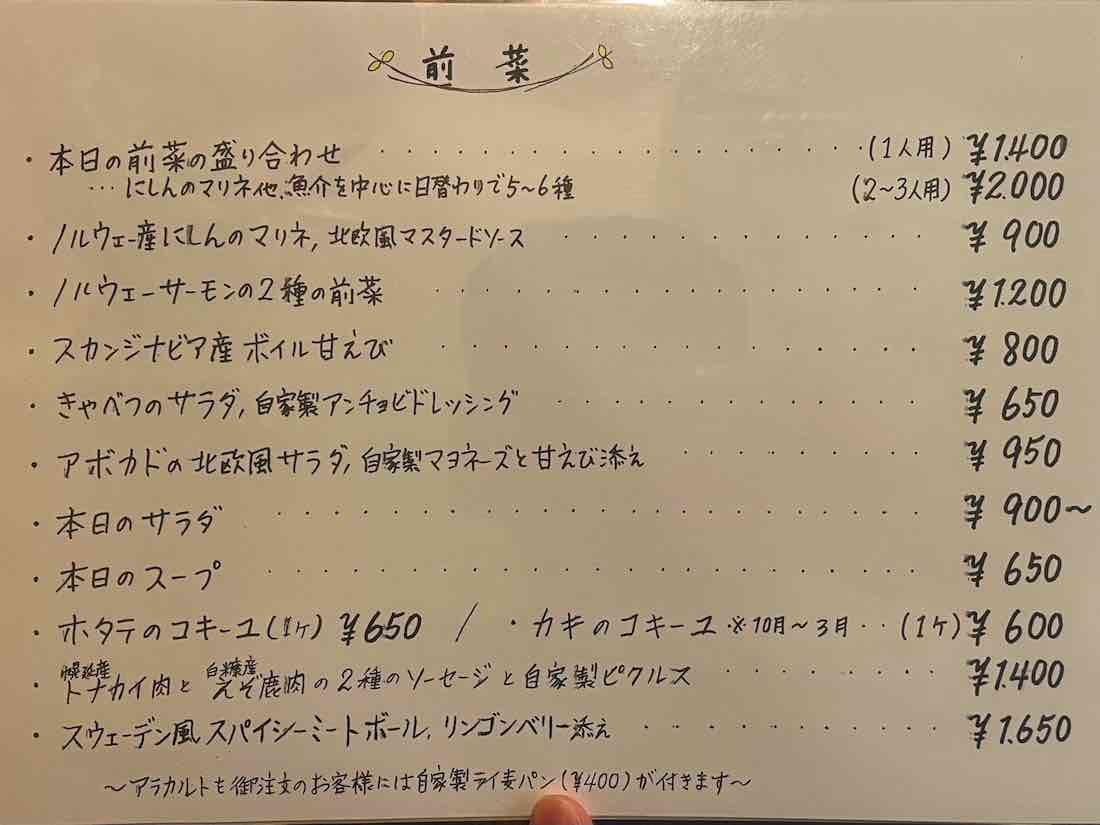 前菜
・本日の前菜の盛り合わせ ・・・・・・・・・・・・・・・・・・(1人用) ¥1.400
・・・にしんのマリネ他、魚介を中心に日替わりで5〜6種 (2〜3人用) ¥2.000
・ノルウェー産にしんのマリネ, 北欧風マスタードソース ・・・・・・・・・・・・・ ¥900
・ノルウェーサーモンの2種の前菜 ・・・・・・・・・・・・・・・・・ ¥1.200
・スカンジナビア産 ボイル甘えび ・・・・・・・・・・・・・・・・・ ¥800
・きゃべつのサラダ, 自家製アンチョビドレッシング ・・・・・・・・・・・・・ ¥650
・アボカドの北欧風サラダ, 自家製マヨネーズと甘えび添え ・・・・・・・・・ ¥950
・本日のサラダ ・・・・・・・・・・・・・・・・・・・・・・ ¥900〜
・本日のスープ ・・・・・・・・・・・・・・・・・・・・・・ ¥650
・ホタテのコキーユ(1ケ) ¥650 / ・カキのコキーユ ※10月〜3月 ・・(1ケ) ¥600
幌延産 白糠産
・トナカイ肉と えぞ鹿肉の2種のソーセージと自家製ピクルス ・・・・・・・・ ¥1.400
・スウェーデン風 スパイシーミートボール, リンゴンベリー添え ・・・・・・・・・ ¥1.650
〜アラカルトを御注文のお客様には自家製ライ麦パン(¥400)が付きます〜